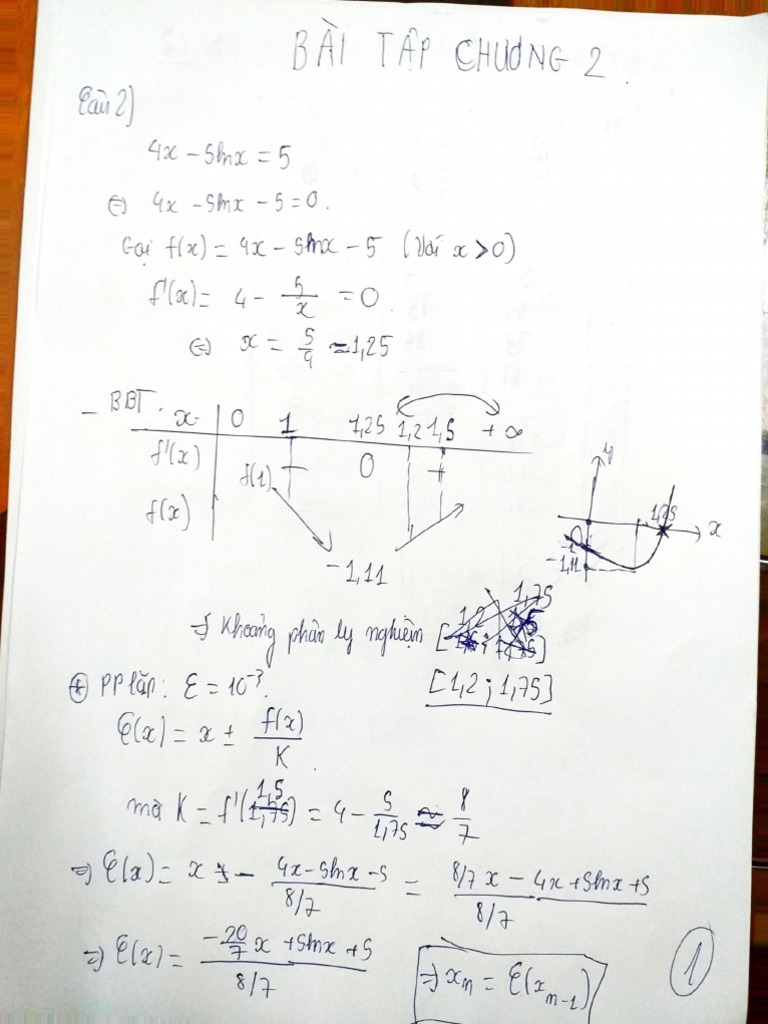 BÀI TẬP CHƯƠNG 2.
Câu 2)
4x - 5lnx = 5
⇔ 4x - 5lnx - 5 = 0.
Gọi f(x) = 4x - 5lnx - 5 (Với x > 0)
f'(x) = 4 - 5/x = 0
⇔ x = 5/4 ≈ 1,25
- BBT.
x 0 1 1,25 1,2 1,5 +∞
f'(x) - 0 +
f(x) f(1)
-1,11
y
1,75
x
0
-1
-1,11
⇒ Khoảng phân ly nghiệm
[1,2 ; 1,75]
⊕ PP lặp: ε = 10⁻³.
φ(x) = x ± f(x)/K
mà K = f'(1,5) = 4 - 5/1,75 ≈ 8/7
⇒ φ(x) = x - (4x - 5lnx - 5)/(8/7) = (8/7 x - 4x + 5lnx + 5)/(8/7)
⇒ φ(x) = (-20/7 x + 5lnx + 5)/(8/7)
⇒ xₙ = φ(xₙ₋₁)
1